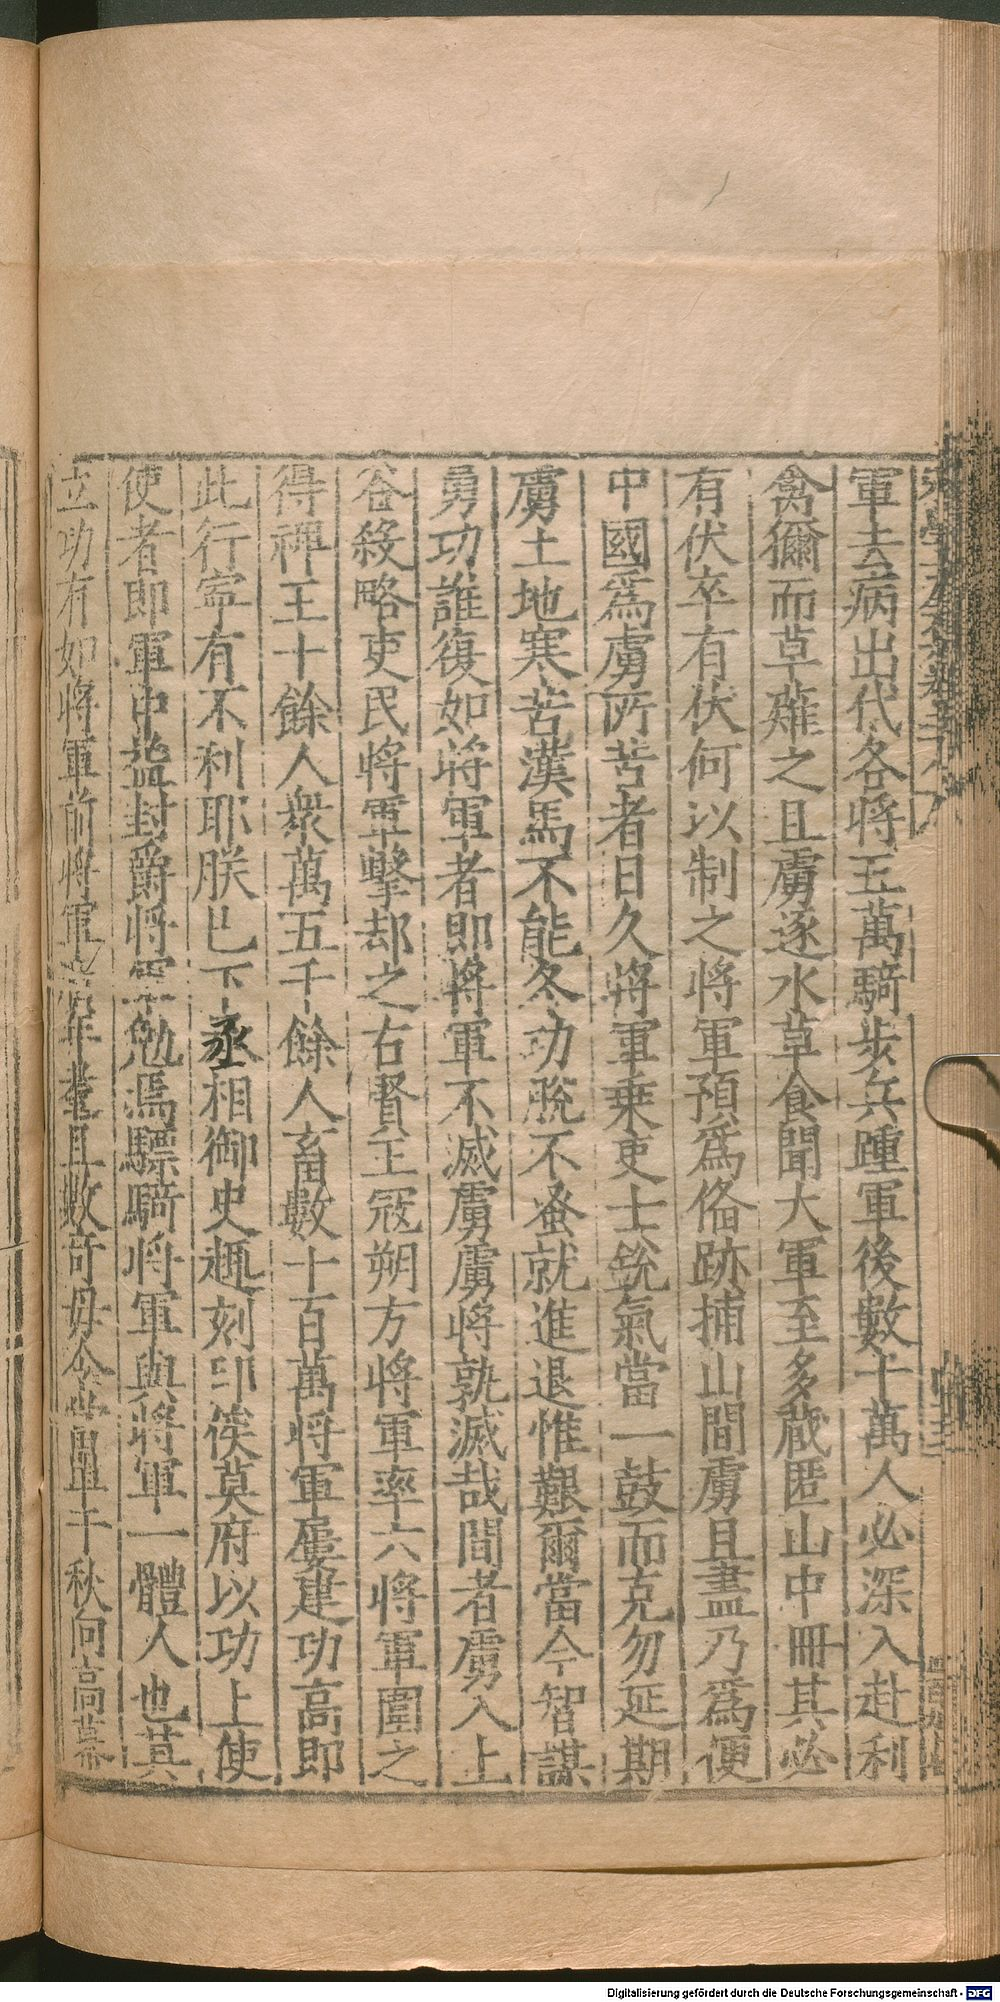 軍去病出代各將五萬騎步兵踵軍後數十萬人必深入赴利
禽獮而草薙之且虜逐水草食聞大軍至多蔵匿山中冊其必
有伏卒有伏何以制之將軍預爲俻跡捕山間虜且盡乃爲便
中國爲虜所苦者日久將軍乗吏士銳氣當一鼓而克勿延期
虜土地寒苦漢馬不能冬功脫不蚤就進退惟艱爾當今智謀
勇功誰復如將軍者即將軍不滅虜虜將孰滅哉間者虜入上
谷殺略吏民將軍擊却之右賢王冦朔方將軍率六將軍圍之
得裨王十餘人衆萬五千餘人畜數十百萬將軍屢建功高即
此行寜有不利耶朕巳下丞相御史趣刻印俟莫府以功上使
使者即軍中益封爵將軍勉焉驃騎將軍與將軍一體人也其
立功有如將軍前將軍年耄且數竒毋令當單于秋向高幕
Digitalisierung gefördert durch die Deutsche Forschungsgemeinschaft - DFG